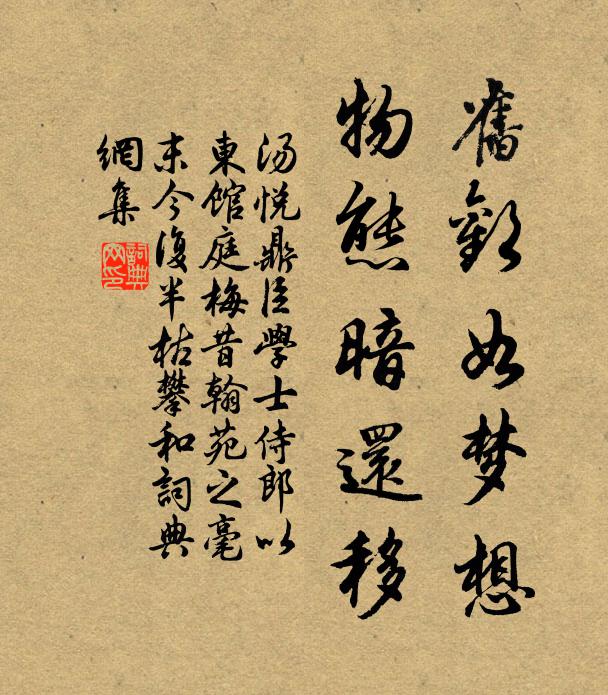 舊歡如梦想
物態暗還移
汤悅鼎臣學士侍郎以
東館庭梅昔翰苑之毫
末今復半枯攀和詞典
網集
詞典
网印